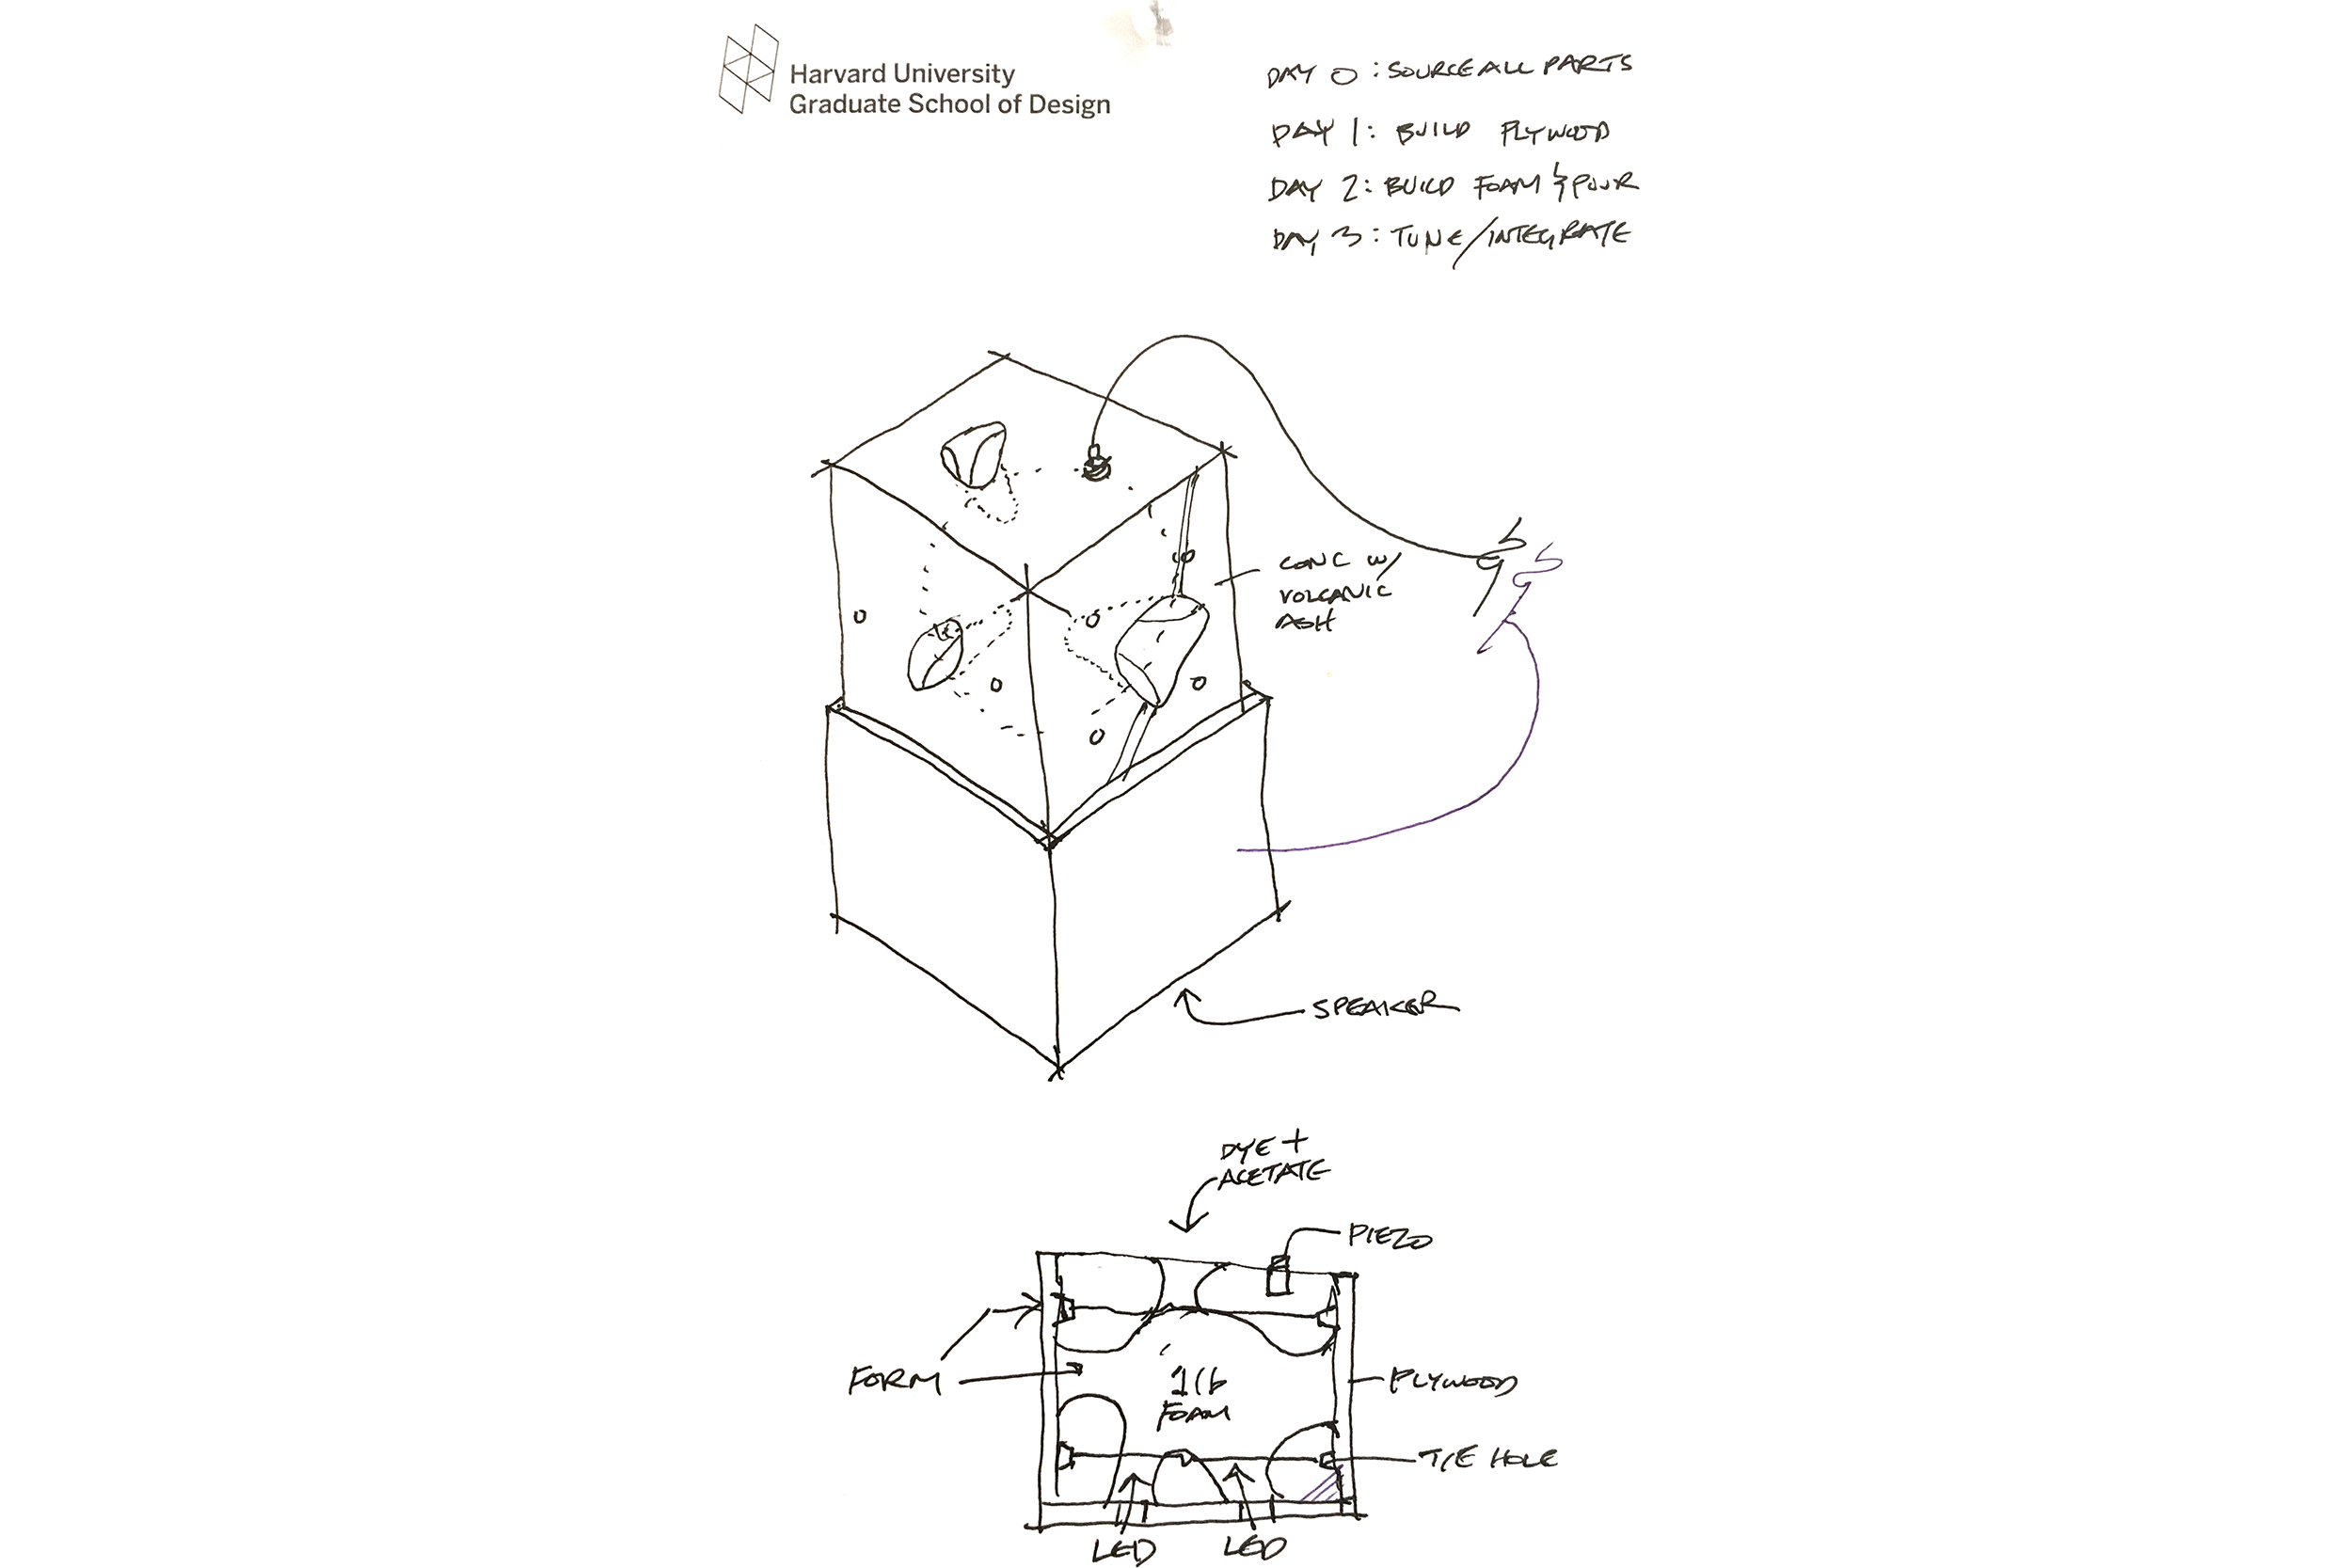 Harvard University
Graduate School of Design
DAY 0 : SOURCE ALL PARTS
DAY 1 : BUILD PLYWOOD
DAY 2 : BUILD FOAM & POUR
DAY 3 : TUNE/INTEGRATE
CONC W/
VOLCANIC
ASH
SPEAKER
DYE +
ACETATE
PIEZO
FORM
FOAM
PLYWOOD
TIE HOLE
LED
LED